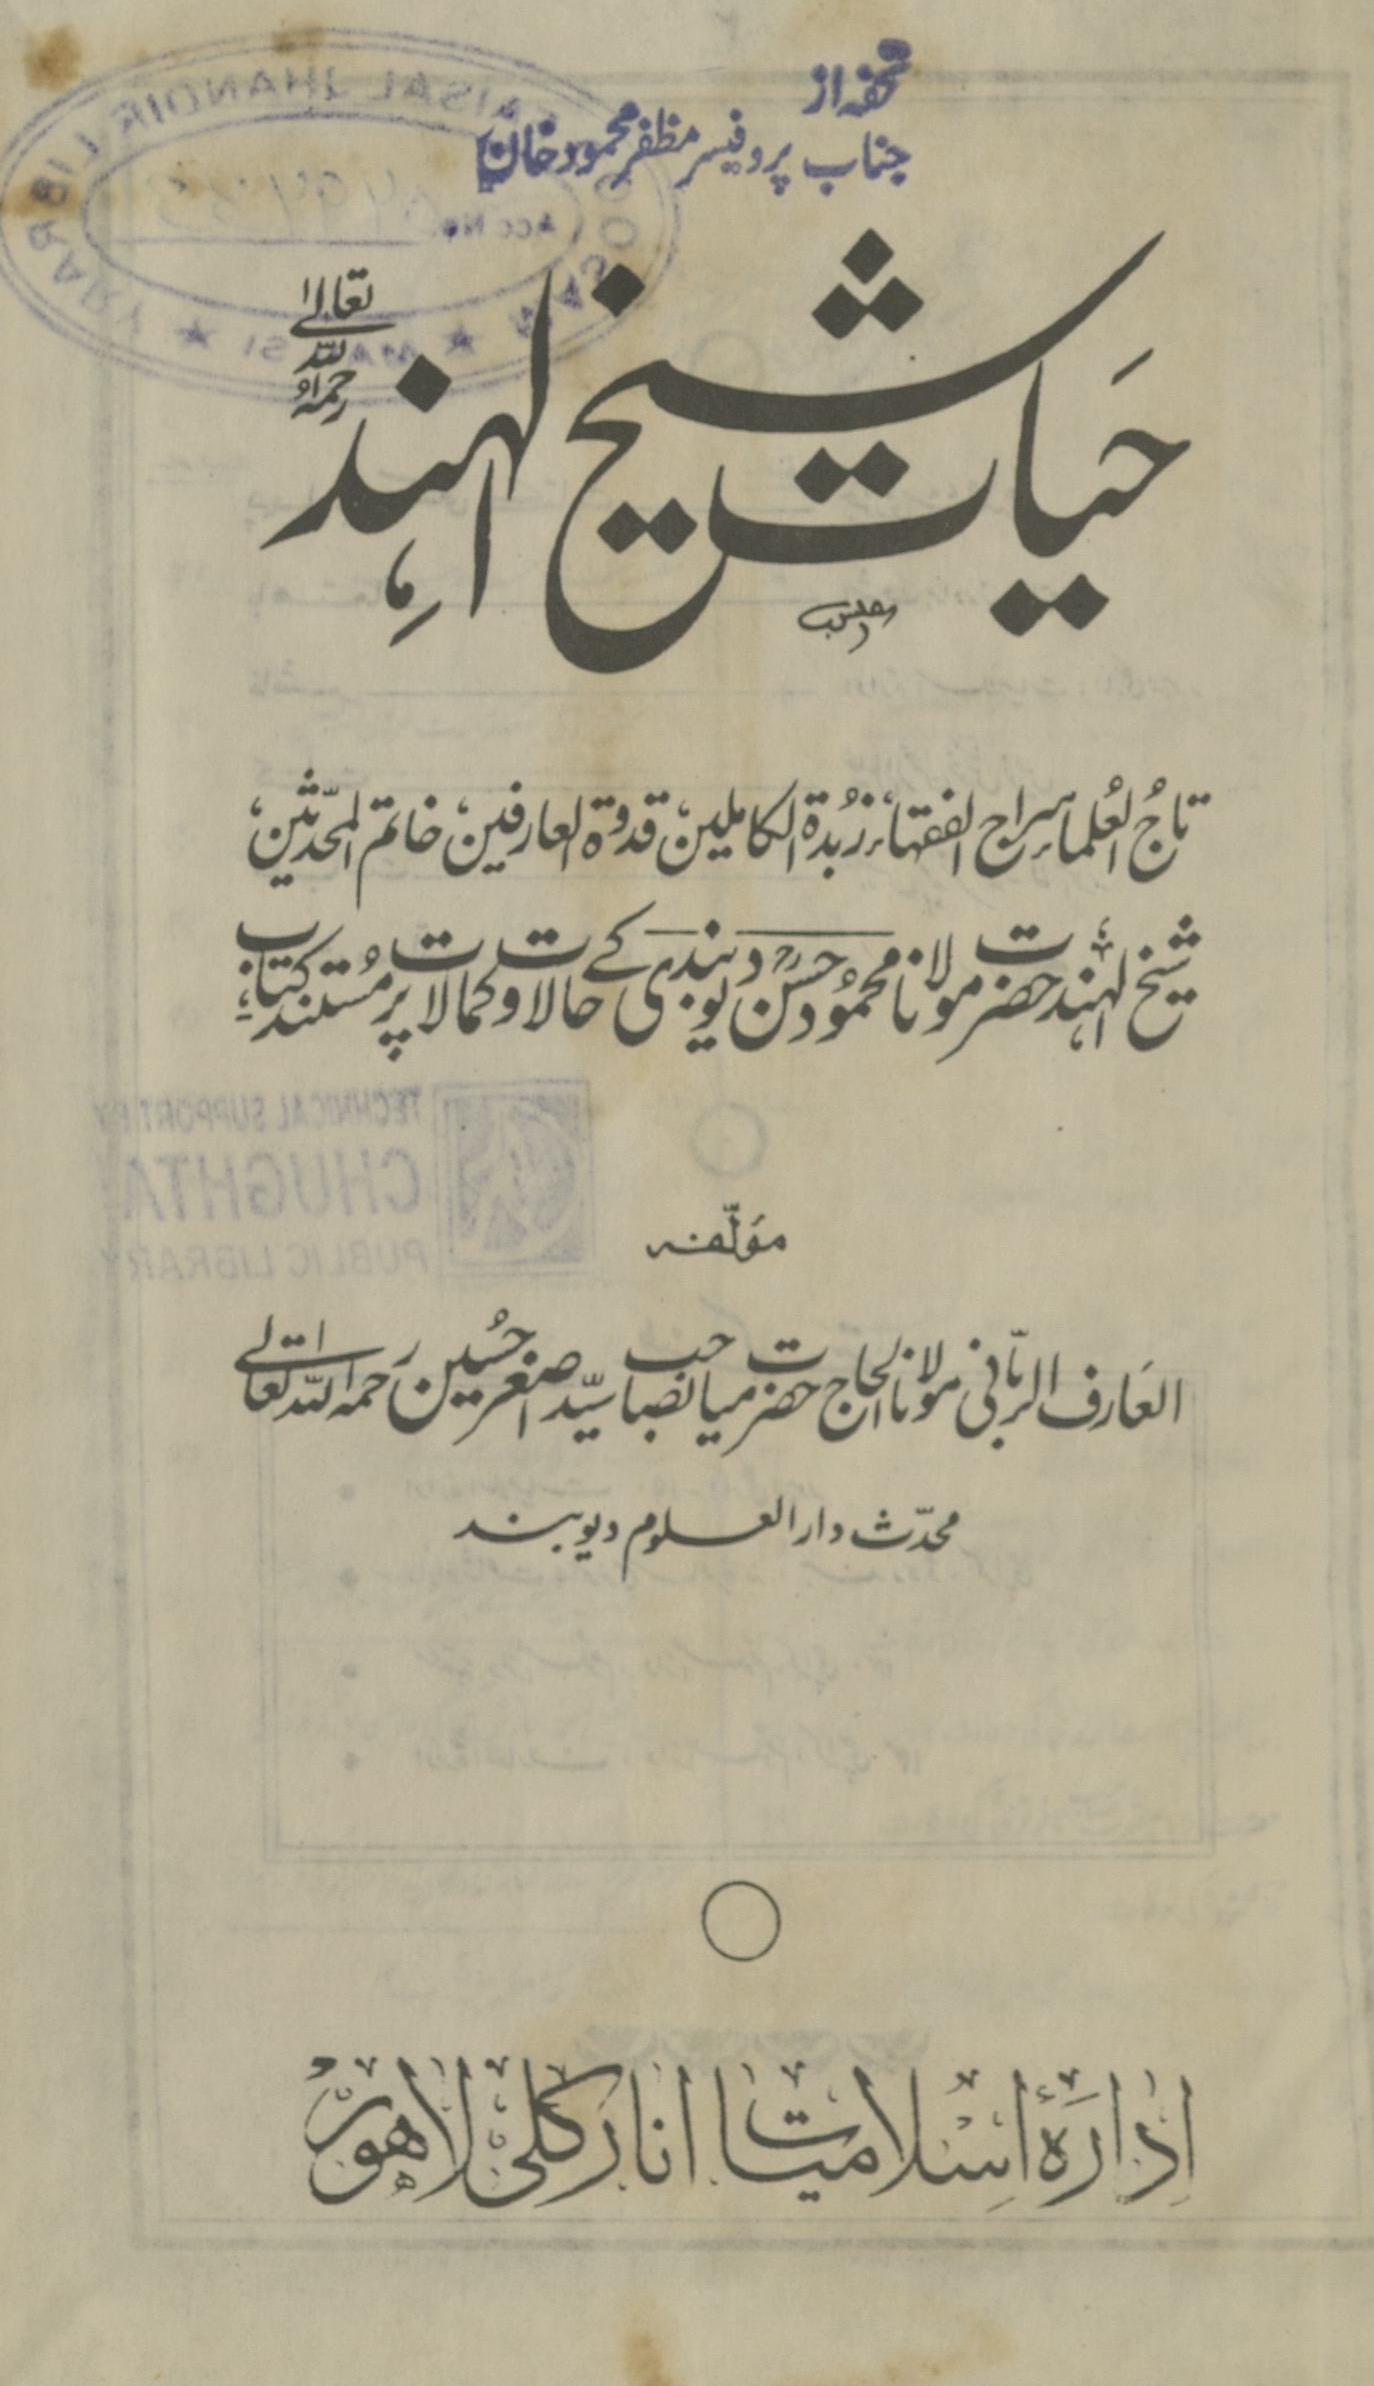 تحفہ از
جناب پروفیسر مظفر محمود خان
حیات شیخ الہند رحمہ اللہ تعالیٰ
تاج العلماء سراج الفقہاء، زبدۃ الکاملین، قدوۃ العارفین، خاتم المحدثین،
شیخ الہند حضرت مولانا محمود حسن دیوبندی کے حالات و کمالات پر مستند کتاب؛
مؤلفہ
العارف الربانی مولانا الحاج حضرت میانصاحب سید اصغر حسین رحمہ اللہ تعالےٰ
محدّث دارالعلوم دیوبند
ادارۂ اسلامیات انارکلی لاہور